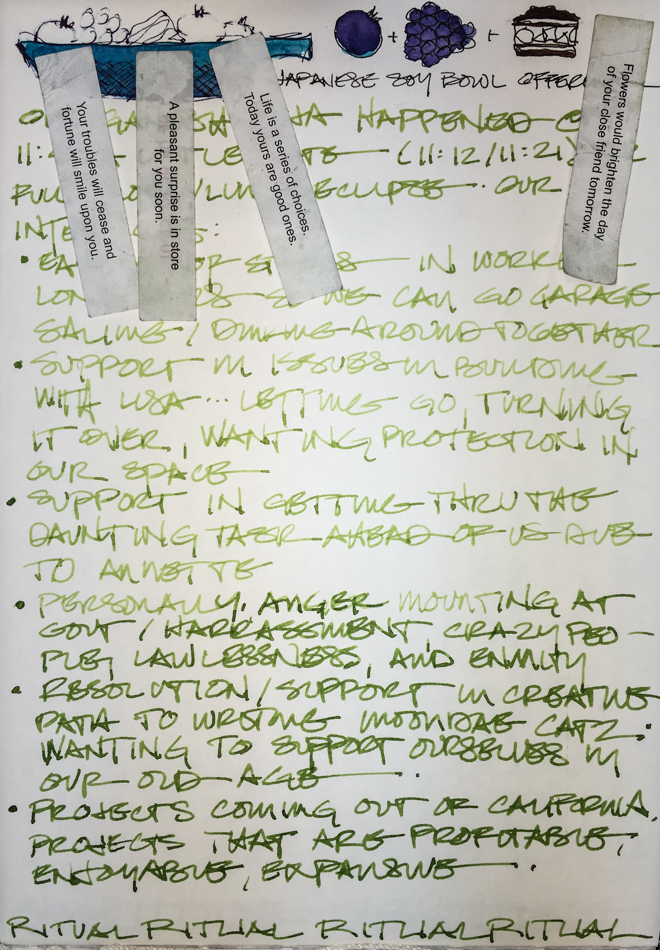 JAPANESE SOY BOWL OFFER
Your troubles will cease and
fortune will smile upon you.
A pleasant surprise is in store
for you soon.
Life is a series of choices.
Today yours are good ones.
Flowers would brighten the day
of your close friend tomorrow.
HAPPENED
11: (11:12/11:21)
FULL ECLIPSE OUR
INTE S:
• EA OF IN WORK
LON WE CAN GO GARAGE
SALING / DRIVING AROUND TOGETHER
• SUPPORT IN ISSUES IN BUILDING
WITH LISA ... LETTING GO, TURNING
IT OVER, WANTING PROTECTION IN
OUR SPACE
• SUPPORT IN GETTING THRU THE
DAUNTING TASK AHEAD OF US DUE
TO ANNETTE
• PERSONALLY, ANGER MOUNTING AT
GOVT / HARRASSMENT, CRAZY PEO-
PLE, LAWLESSNESS, AND ENMITY
• RESOLUTION/SUPPORT IN CREATIVE
PATH TO WRITING MOONDAE CATZ.
WANTING TO SUPPORT OURSELVES IN
OUR OLD AGE.
• PROJECTS COMING OUT OF CALIFORNIA,
PROJECTS THAT ARE PROFITABLE,
ENJOYABLE, EXPANSIVE.
RITUAL RITUAL RITUAL RITUAL